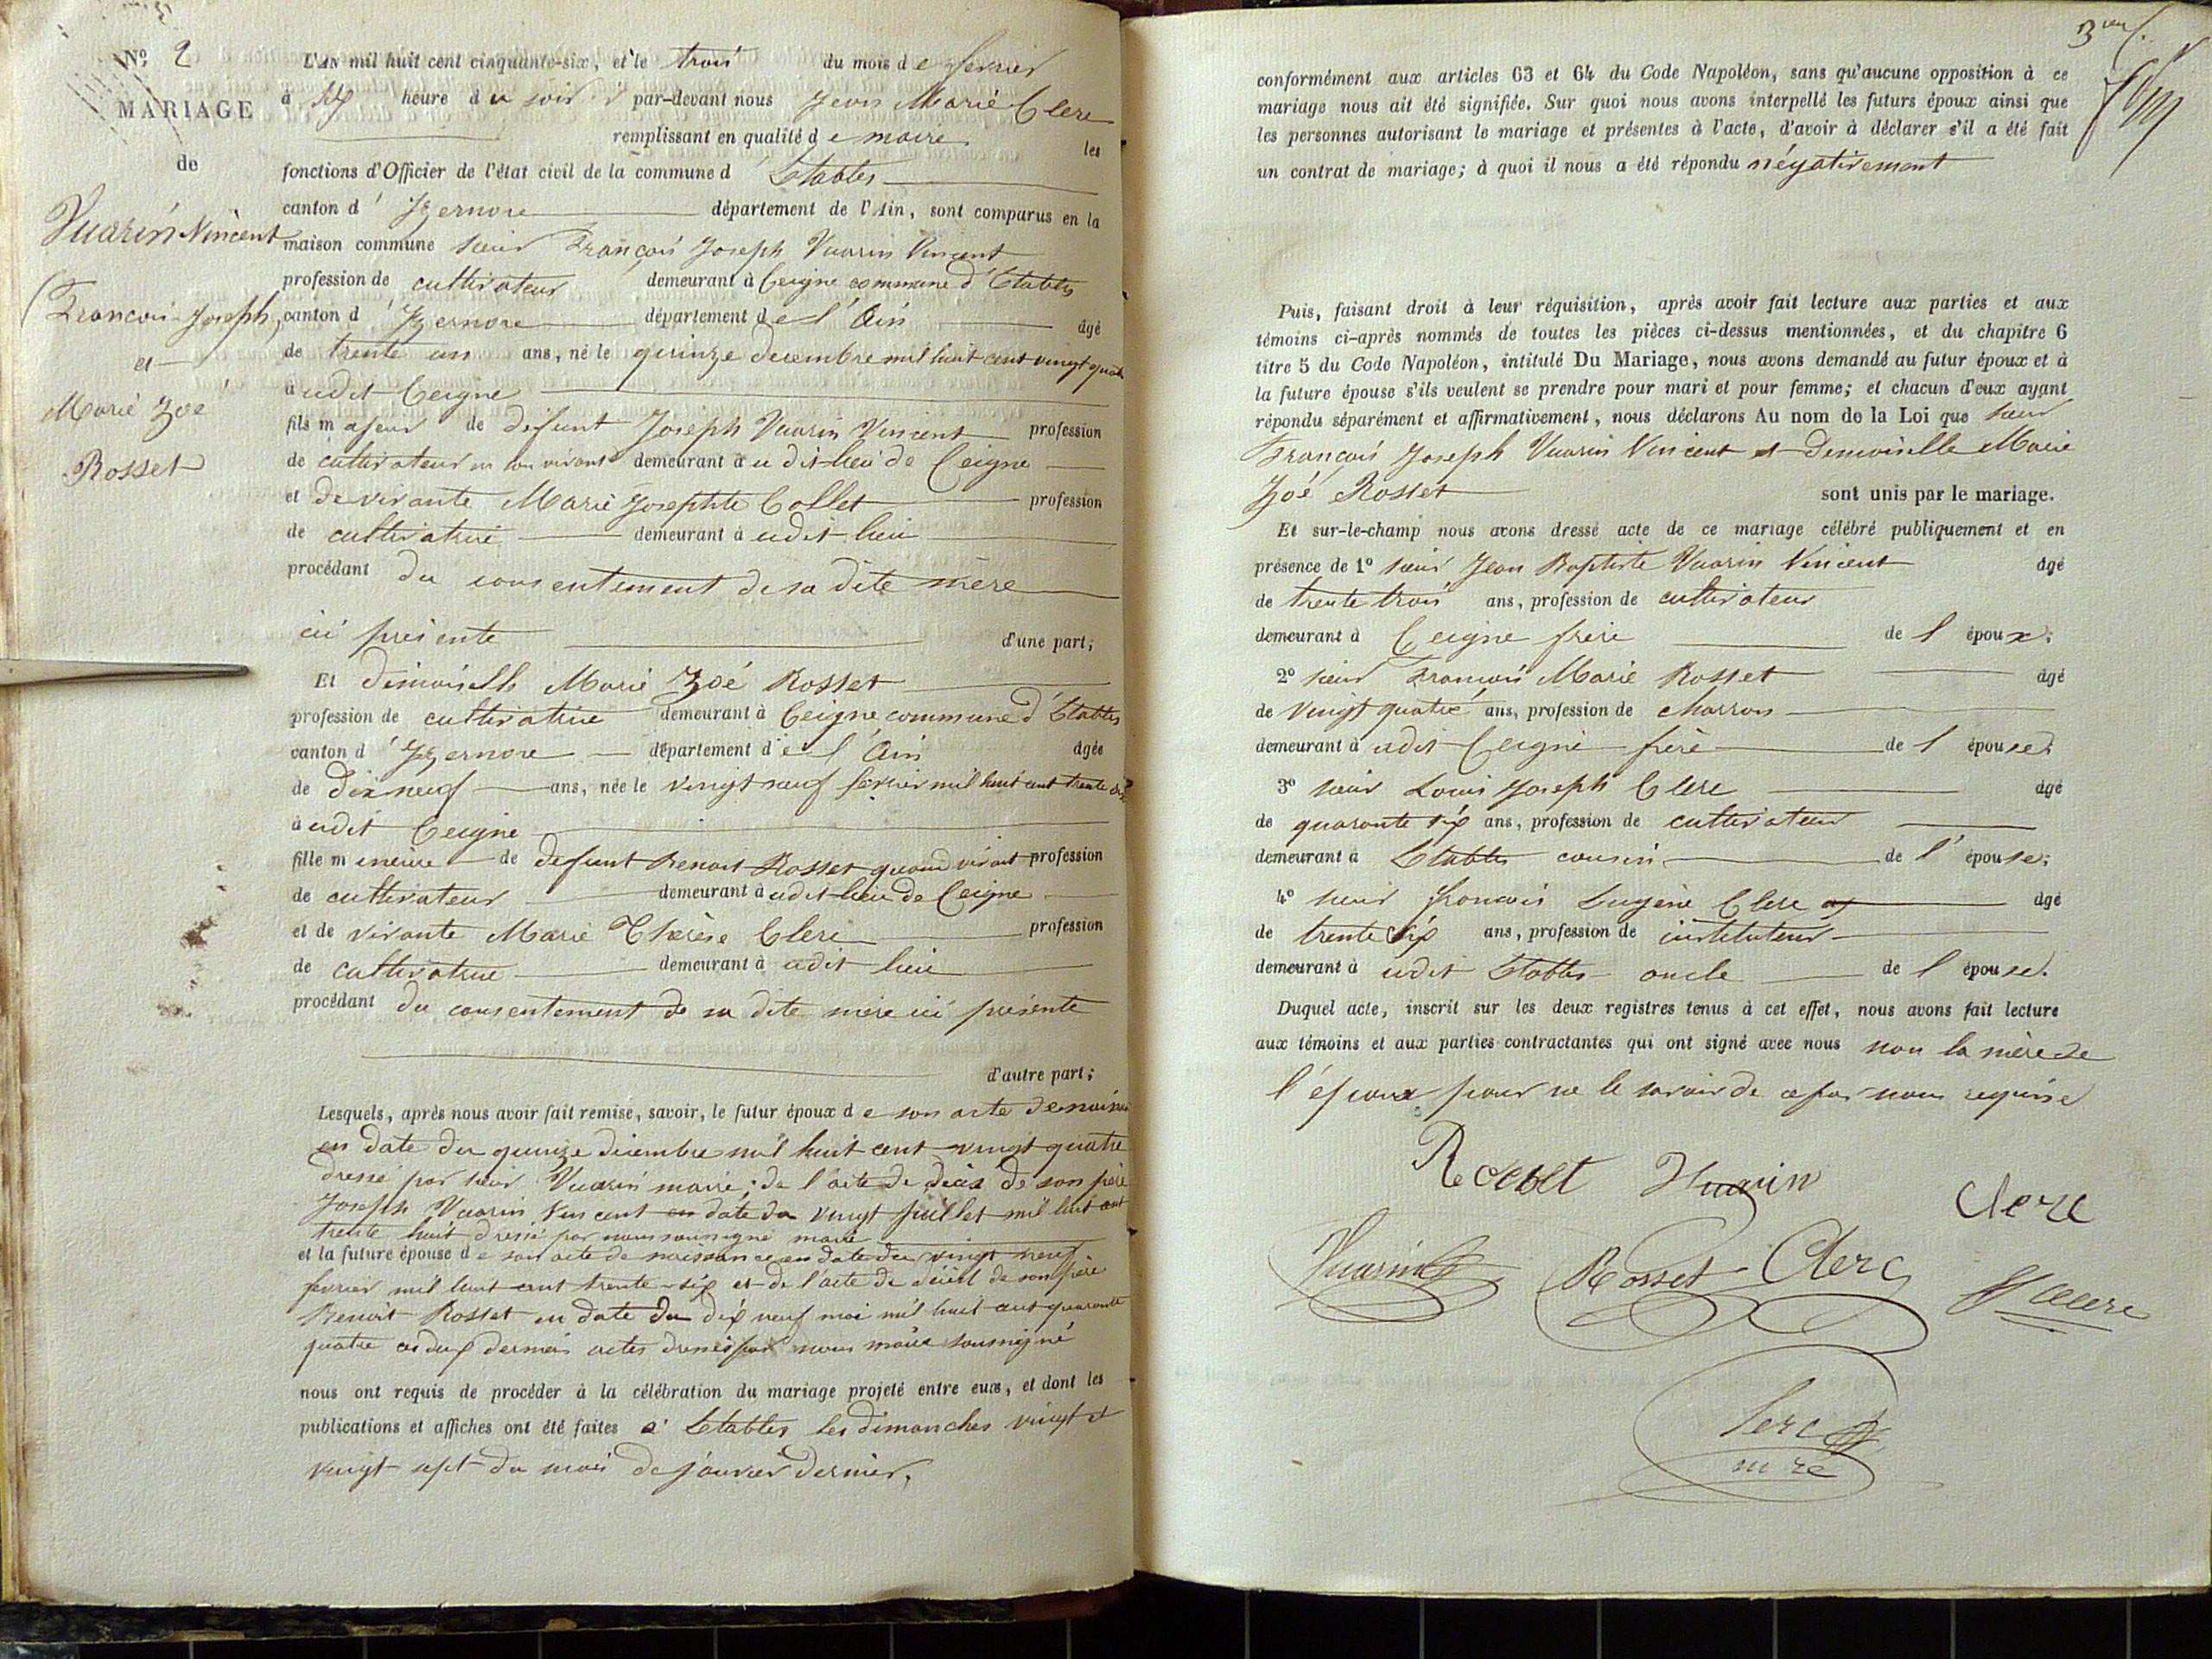 No 2
MARIAGE
de
Vuarin Vincent
François Joseph,
et
Marie Zoé
Rosset
L'AN mil huit cent cinquante-six, et le trois du mois de fevrier
à six heure du soir par-devant nous Jean Marie Clerc
remplissant en qualité de maire les
fonctions d'Officier de l'état civil de la commune d'Etables
canton d'Izernore département de l'Ain, sont comparus en la
maison commune sieur François Joseph Vuarin Vincent
profession de cultivateur demeurant à Ceigne commune d'Etables
canton d'Izernore département de l'Ain âgé
de trente un ans, né le quinze decembre mil huit cent vingt quatre
audit Ceigne
fils majeur de defunt Joseph Vuarin Vincent profession
de cultivateur en son vivant demeurant au dit lieu de Ceigne
et de vivante Marie Josephte Collet profession
de cultivatrice demeurant à udit lieu
procédant du consentement de sa dite mère
ici présente d'une part;
Et demoiselle Marie Zoé Rosset
profession de cultivatrice demeurant à Ceigne commune d'Etables
canton d'Izernore département de l'Ain âgée
de dix neuf ans, née le vingt neuf fevrier mil huit cent trente six
audit Ceigne
fille mineure de defunt Benoit Rosset quand vivant profession
de cultivateur demeurant à udit lieu de Ceigne
et de vivante Marie Thérèse Clerc profession
de cultivatrice demeurant à udit lieu
procédant du consentement de sa dite mère ici présente
d'autre part;
Lesquels, après nous avoir fait remise, savoir, le futur époux de son acte de naissance
en date du quinze décembre mil huit cent vingt quatre
dressé par sieur Vuarin maire; de l'acte de décès de son père
Joseph Vuarin Vincent en date du vingt juillet mil huit cent
trente huit dressé par nous soussigné maire
et la future épouse de son acte de naissance en date du vingt neuf
fevrier mil huit cent trente-six et de l'acte de décès de son père
Benoit Rosset en date du dix neuf mai mil huit cent quarante
quatre ces deux derniers actes dressés par nous maire soussigné
nous ont requis de procéder à la célébration du mariage projeté entre eux, et dont les
publications et affiches ont été faites à Etables les dimanches vingt et
vingt sept du mois de janvier dernier,
3me f.
conformément aux articles 63 et 64 du Code Napoléon, sans qu'aucune opposition à ce
mariage nous ait été signifiée. Sur quoi nous avons interpellé les futurs époux ainsi que
les personnes autorisant le mariage et présentes à l'acte, d'avoir à déclarer s'il a été fait
un contrat de mariage; à quoi il nous a été répondu négativement
Puis, faisant droit à leur réquisition, après avoir fait lecture aux parties et aux
témoins ci-après nommés de toutes les pièces ci-dessus mentionnées, et du chapitre 6
titre 5 du Code Napoléon, intitulé Du Mariage, nous avons demandé au futur époux et à
la future épouse s'ils veulent se prendre pour mari et pour femme; et chacun d'eux ayant
répondu séparément et affirmativement, nous déclarons Au nom de la Loi que sieur
François Joseph Vuarin Vincent et Demoiselle Marie
Zoé Rosset sont unis par le mariage.
Et sur-le-champ nous avons dressé acte de ce mariage célébré publiquement et en
présence de 1o sieur Jean Baptiste Vuarin Vincent âgé
de trente trois ans, profession de cultivateur
demeurant à Ceigne frère de l époux;
2o sieur François Marie Rosset âgé
de vingt quatre ans, profession de charron
demeurant à udit Ceigne frère de l épouse;
3o sieur Louis Joseph Clerc âgé
de quarante six ans, profession de cultivateur
demeurant à Etables cousin de l'épouse;
4o sieur François Eugène Clerc âgé
de trente six ans, profession de instituteur
demeurant à udit Etables oncle de l épouse.
Duquel acte, inscrit sur les deux registres tenus à cet effet, nous avons fait lecture
aux témoins et aux parties contractantes qui ont signé avec nous non la mère de
l'époux pour ne le savoir de ce par nous requise
Rosset Vuarin
Clerc
Vuarin Rosset Clerc
Clerc
Clerc
mre